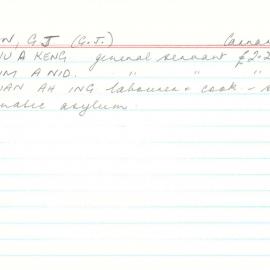 N, G J (G.J.) Carnar
U A KENG general servant £2.2
M A NID. " " "
AN AH ING labourer + cook -
natic asylum.